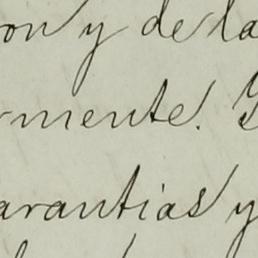 on y de la
rmente.
arantias y